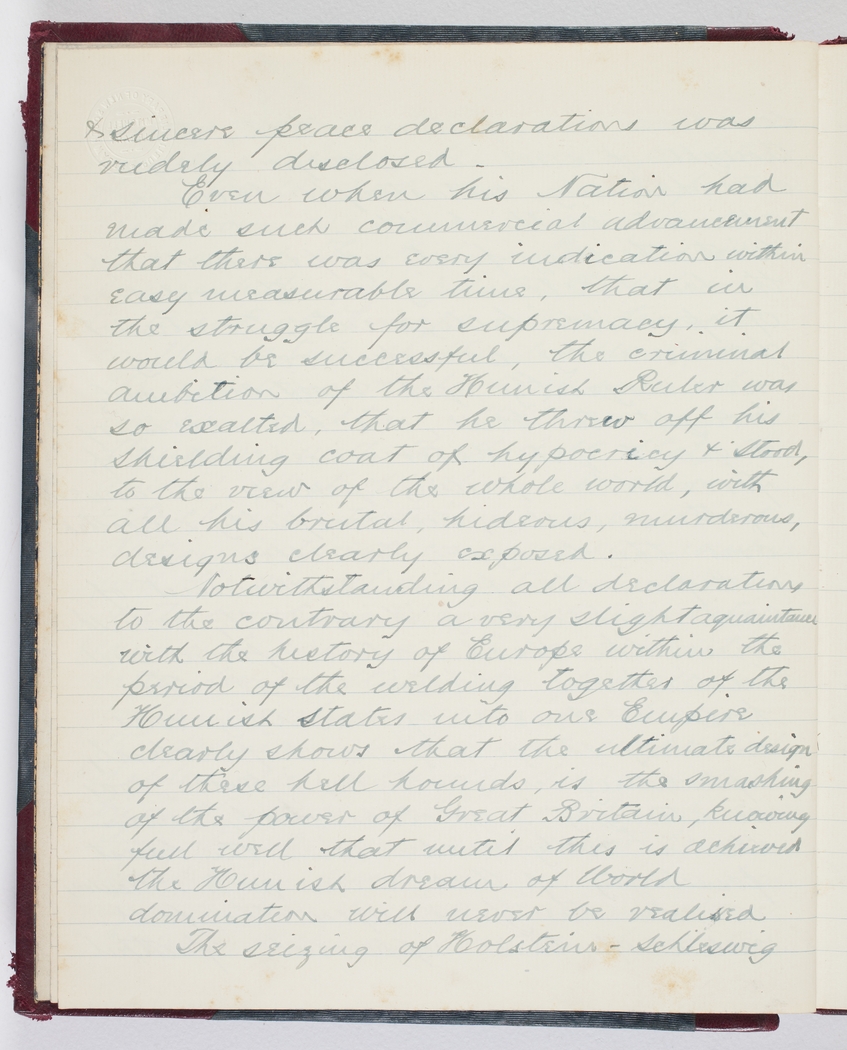 & sincere peace declarations was
rudely disclosed -
Even when his Nation had
made such commercial advancement
that there was every indication within
easy measurable time, that in
the struggle for supremacy, it
would be successful, the criminal
ambition of the Hunish Ruler was
so exalted, that he threw off his
shielding coat of hypocricy & stood,
to the view of the whole world, with
all his brutal, hideous, murderous,
designs clearly exposed.
Notwithstanding all declarations
to the contrary a very slight aquaintance
with the history of Europe within the
period of the welding together of the
Hunish States into one Empire
clearly shows that the ultimate design
of these hell hounds, is the smashing
of the power of Great Britain, knowing
full well that until this is achieved
the Hunish dream of World
domination will never be realised
The seizing of Holstein - Schleswig